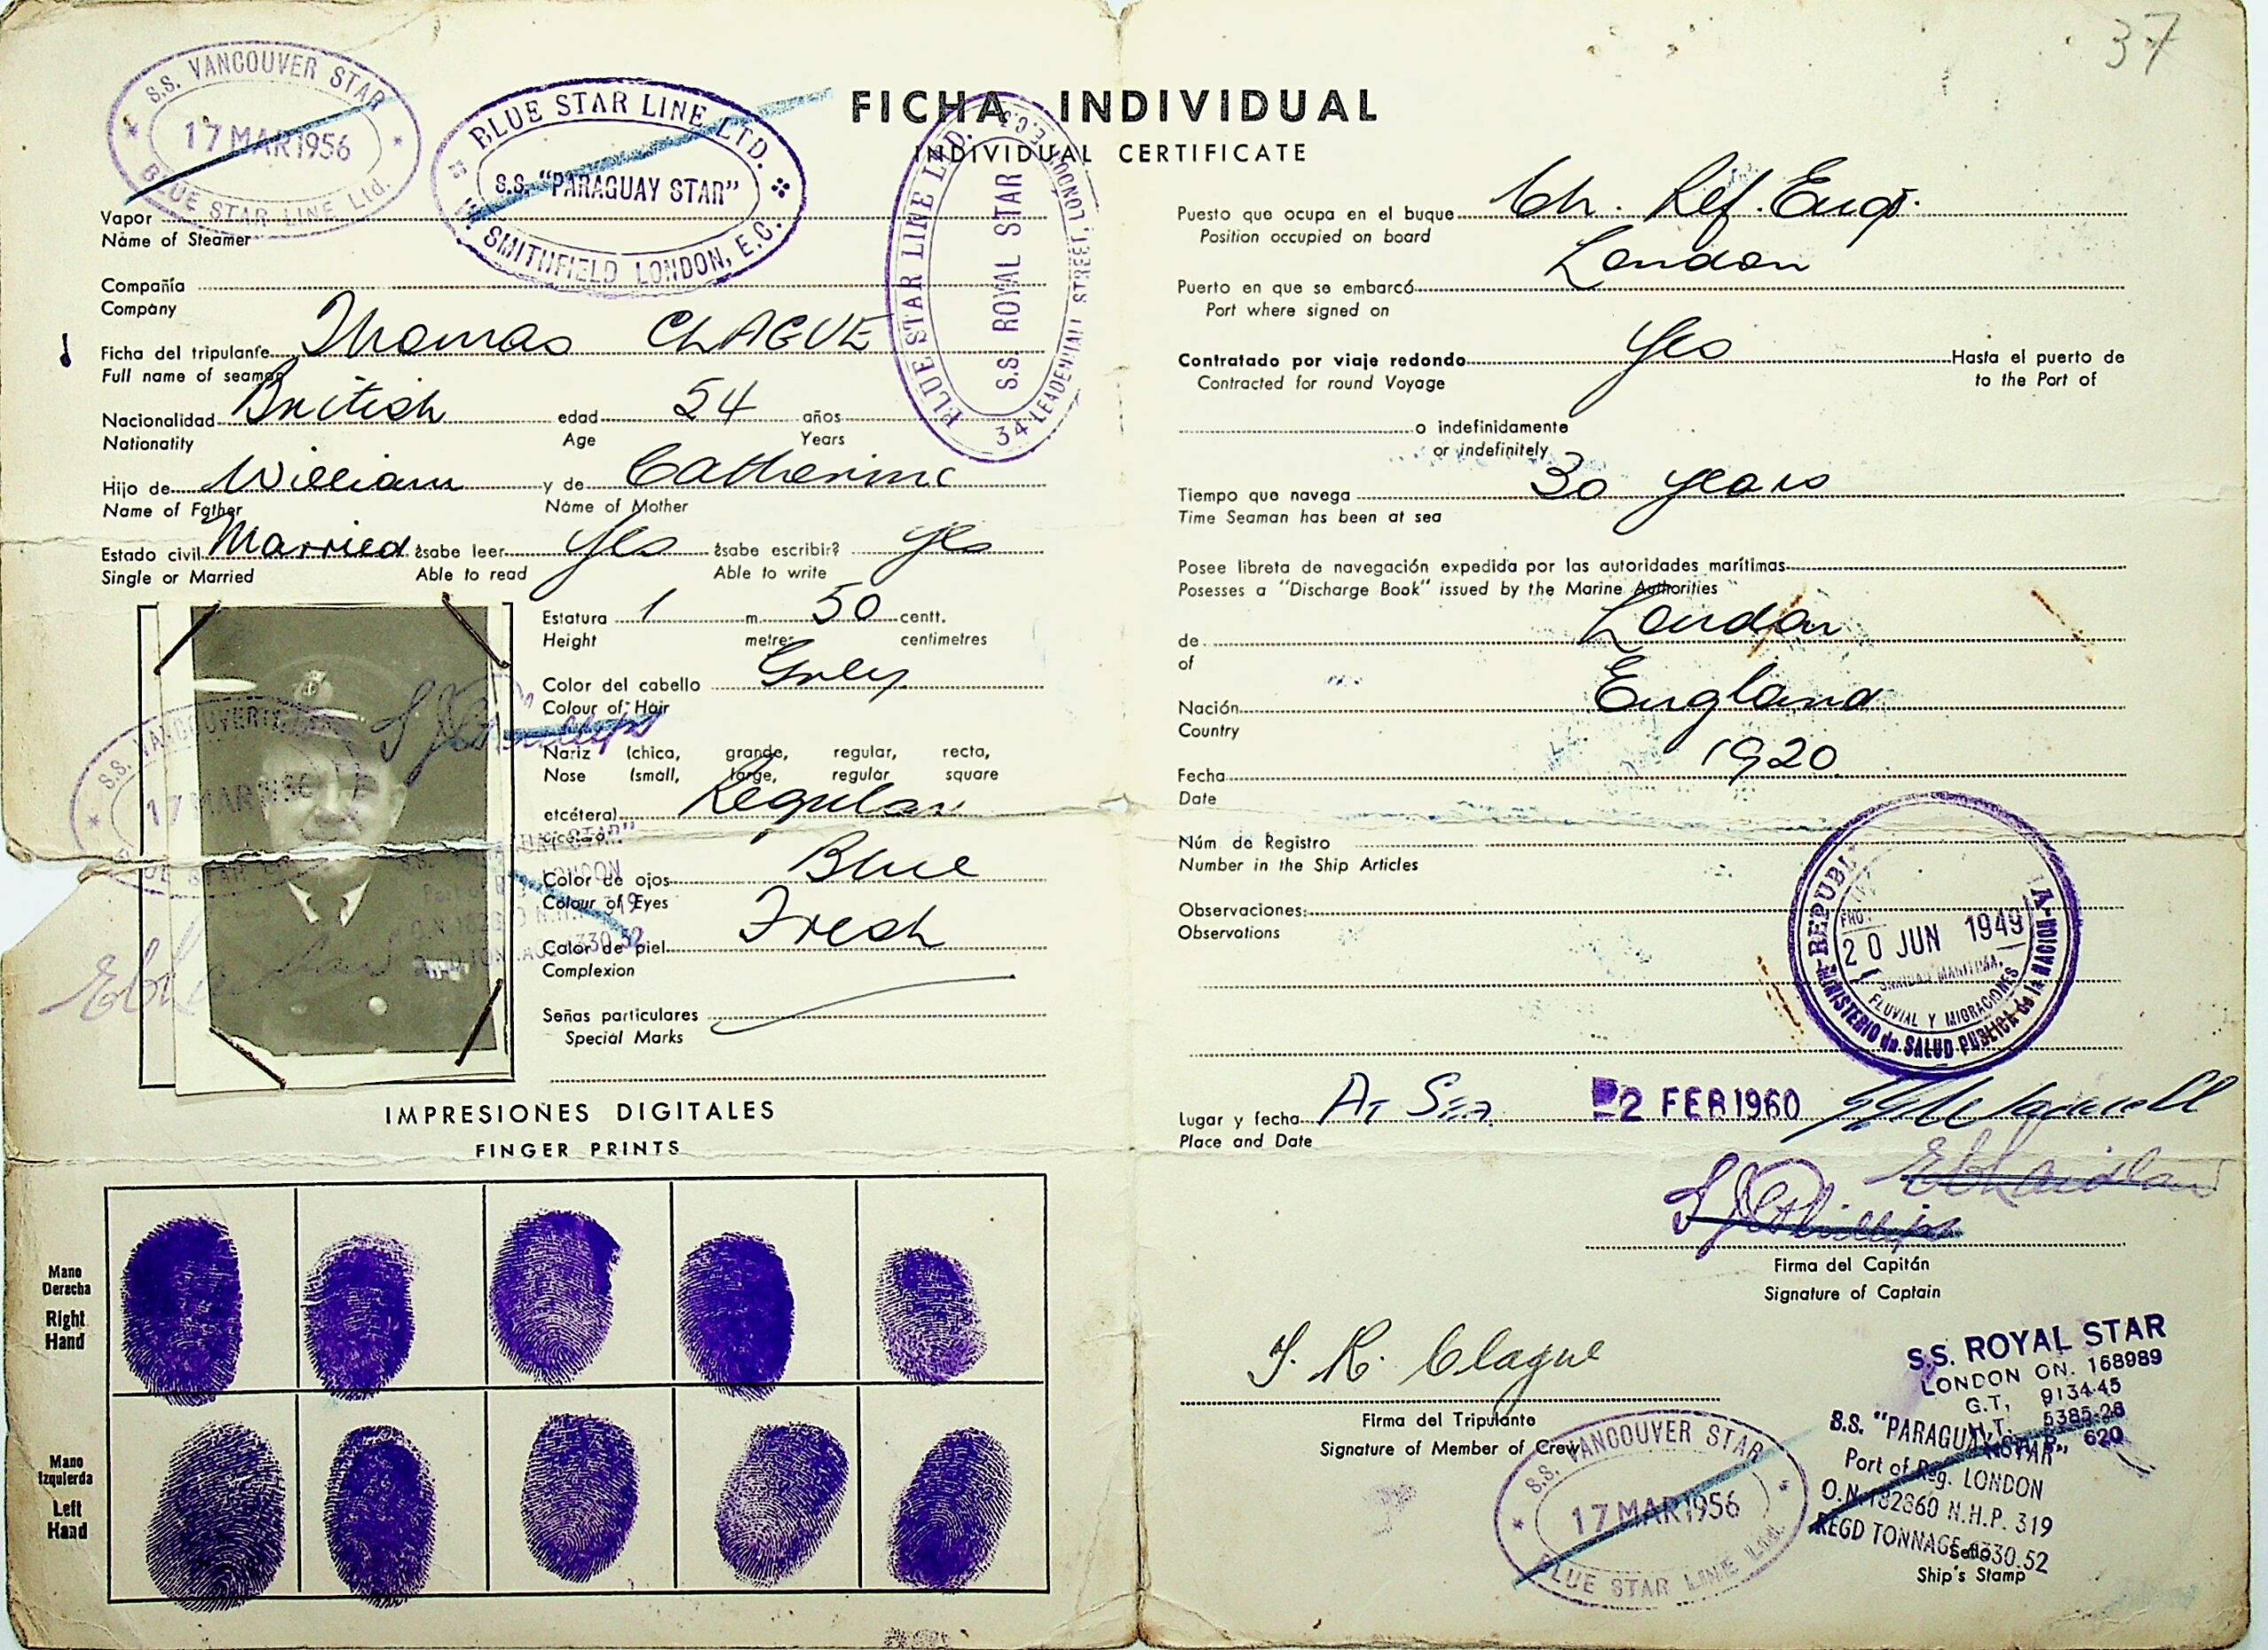 37
FICHA INDIVIDUAL
INDIVIDUAL CERTIFICATE
S.S. VANCOUVER STAR
17 MAR 1956
BLUE STAR LINE Ltd.
BLUE STAR LINE LTD.
S.S. "PARAGUAY STAR"
W. SMITHFIELD LONDON, E.C.
BLUE STAR LINE LTD.
S.S ROYAL STAR
34 LEADENHALL STREET, LONDON, E.C.3
Vapor
Name of Steamer
Compañía
Company
Ficha del tripulante Thomas CLAGUE
Full name of seaman
Nacionalidad British edad 54 años
Nationality Age Years
Hijo de William y de Catherine
Name of Father Name of Mother
Estado civil Married ¿sabe leer yes ¿sabe escribir? yes
Single or Married Able to read Able to write
Estatura 1 m. 50 centt.
Height metres centimetres
Color del cabello Grey
Colour of Hair
Nariz (chica, grande, regular, recta,
Nose (small, large, regular square
etcétera) Regular
Color de ojos Blue
Colour of Eyes
Color de piel Fresh
Complexion
Señas particulares
Special Marks
S.S. VANCOUVER STAR
17 MAR 1956
IMPRESIONES DIGITALES
FINGER PRINTS
Mano Derecha
Right Hand
Mano Izquierda
Left Hand
Puesto que ocupa en el buque Ch. Ref. Engr.
Position occupied on board
Puerto en que se embarcó London
Port where signed on
Contratado por viaje redondo yes Hasta el puerto de
Contracted for round Voyage to the Port of
o indefinidamente
or indefinitely
Tiempo que navega 30 years
Time Seaman has been at sea
Posee libreta de navegación expedida por las autoridades marítimas
Posesses a "Discharge Book" issued by the Marine Authorities
de London
of
Nación England
Country
Fecha 1920
Date
Núm. de Registro
Number in the Ship Articles
Observaciones:
Observations
20 JUN 1949
SANIDAD MARITIMA,
FLUVIAL Y MIGRACIONES
MINISTERIO de SALUD PUBLICA de la NACION
Lugar y fecha At Sea 2 FEB 1960
Place and Date
Firma del Capitán
Signature of Captain
T. R. Clague
Firma del Tripulante
Signature of Member of Crew
S.S. VANCOUVER STAR
17 MAR 1956
BLUE STAR LINE Ltd.
S.S. ROYAL STAR
LONDON ON. 168989
G.T. 9134.45
N.T. 5385.28
620
S.S. "PARAGUAY STAR"
Port of Reg. LONDON
O.N. 182860 N.H.P. 319
REGD TONNAGE 6330.52
Sello
Ship's Stamp